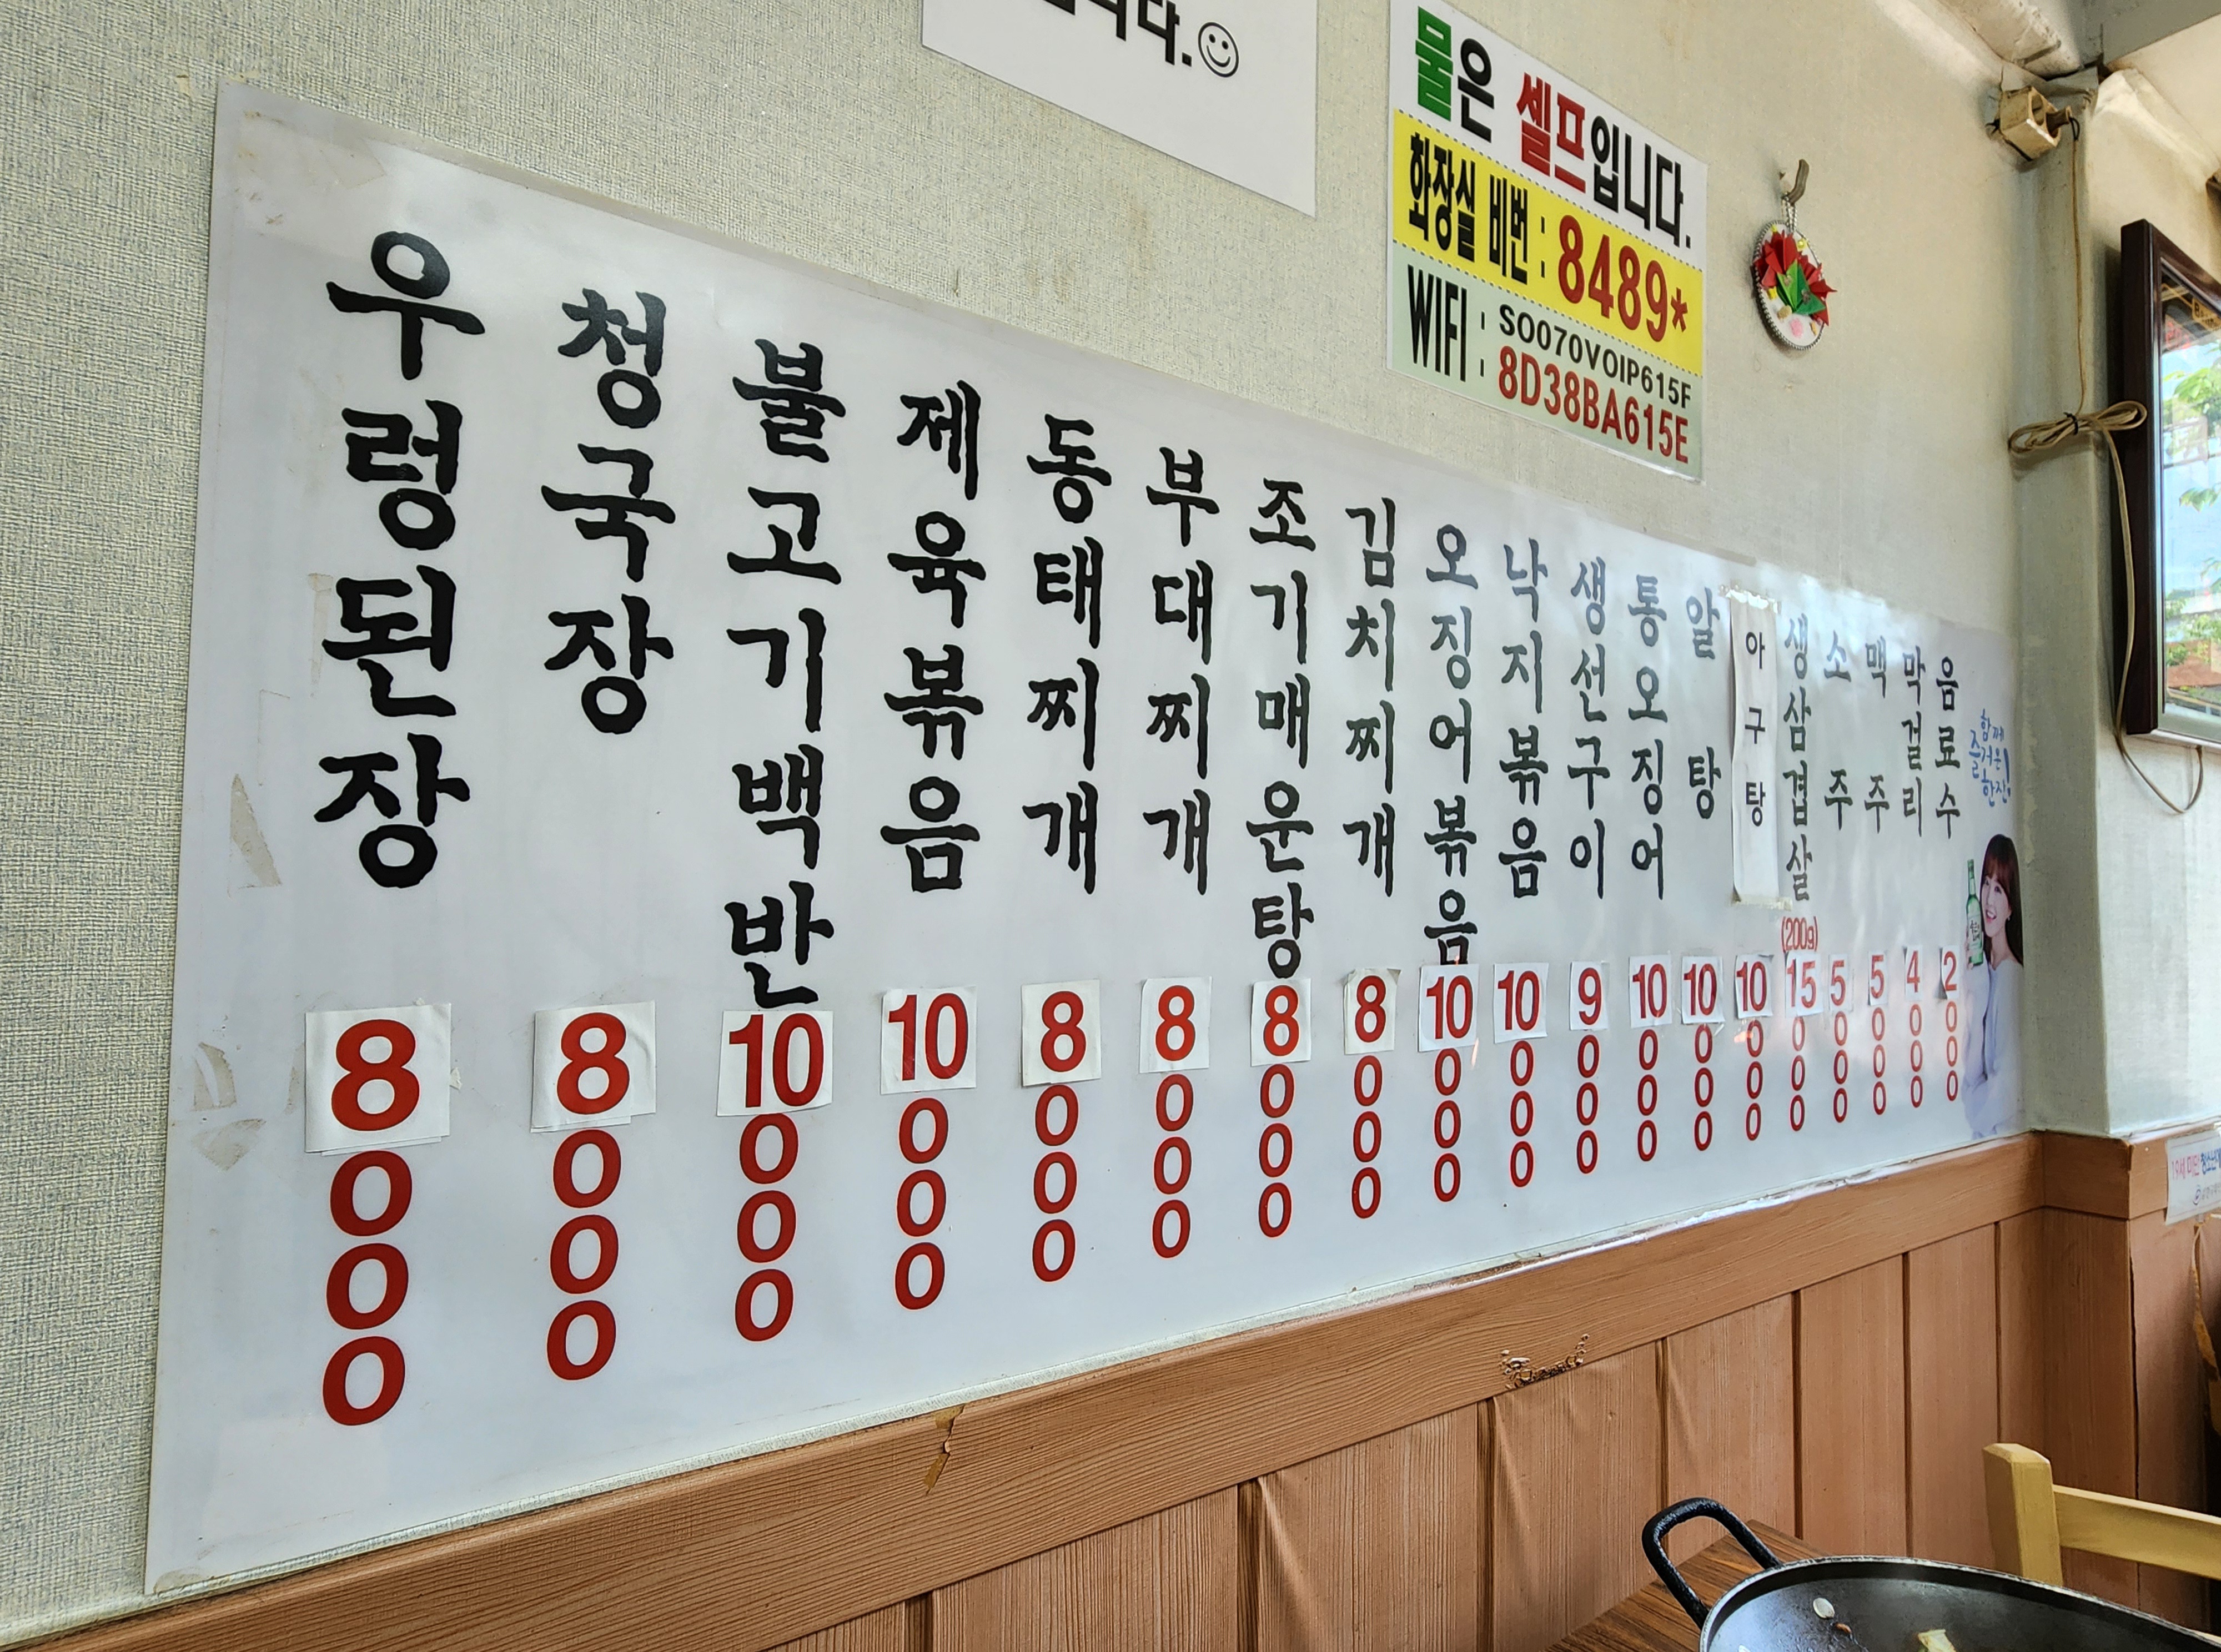 니다.
물은 셀프입니다.
화장실 비번 : 8489*
WIFI : SO070VOIP615F
8D38BA615E
우렁된장 8000
청국장 8000
불고기백반 10000
제육볶음 10000
동태찌개 8000
부대찌개 8000
조기매운탕 8000
김치찌개 8000
오징어볶음 10000
낙지볶음 10000
생선구이 9000
통오징어 10000
알탕 10000
아구탕 10000
생삼겹살 (200g) 15000
소주 5000
맥주 5000
막걸리 4000
음료수 2000
함께
즐거운
한잔!
19세 미만